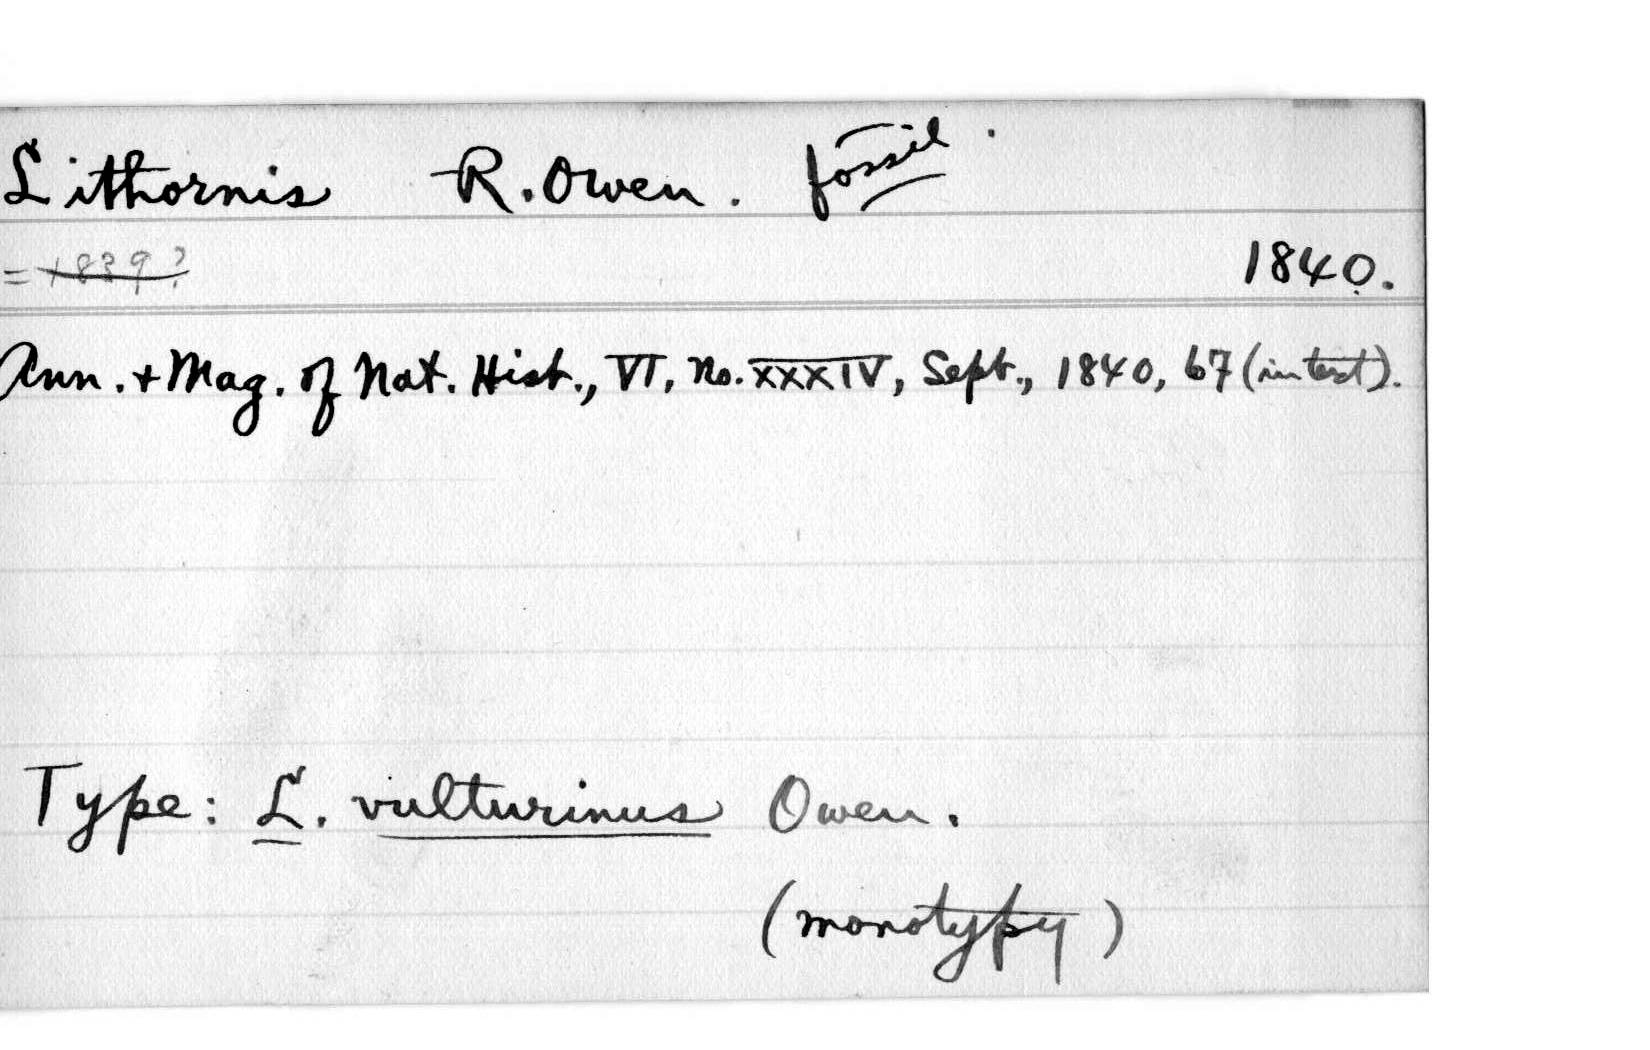 Lithornis R. Owen. fossil.
= 1839?
1840.
Ann. + Mag. of Nat. Hist., VI, No. XXXIV, Sept., 1840, 67 (in text).
Type: L. vulturinus Owen.
(monotypy)